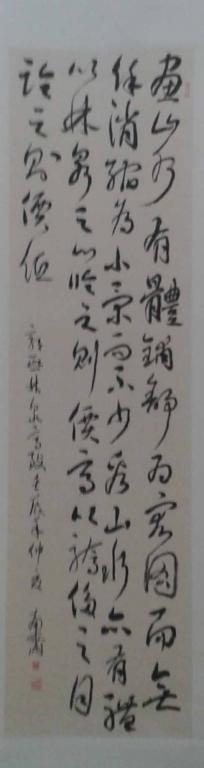 畫山水有體鋪舒為宏圖而無
餘消縮為小景而不少看山水亦有體
以林泉之心臨之則價高以驕侈之目
臨之則價低
郭熙林泉高致壬辰年仲夏